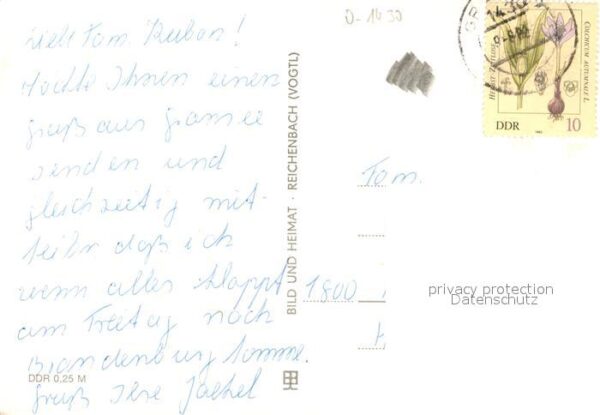 Liebe Fam. Kuban!
Möchte Ihnen einen
gruß aus gransee
senden und
gleichzeitig mit-
teiln daß ich
wenn alles klappt
am Freitag nach
Brandenburg komme.
gruß Ihre
DDR 0,25 M
BILD UND HEIMAT · REICHENBACH (VOGTL)
0-1430
COLCHICUM AUTUMNALE L.
DDR
10
Fam.
1800
privacy protection
Datenschutz